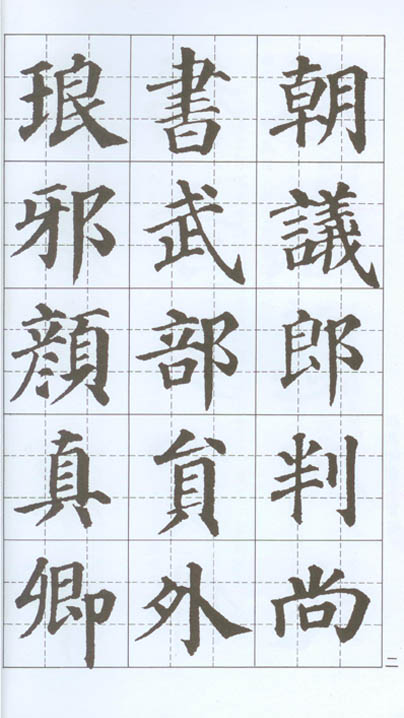 朝議郎判尚
書武部員外
琅邪顏真卿
二